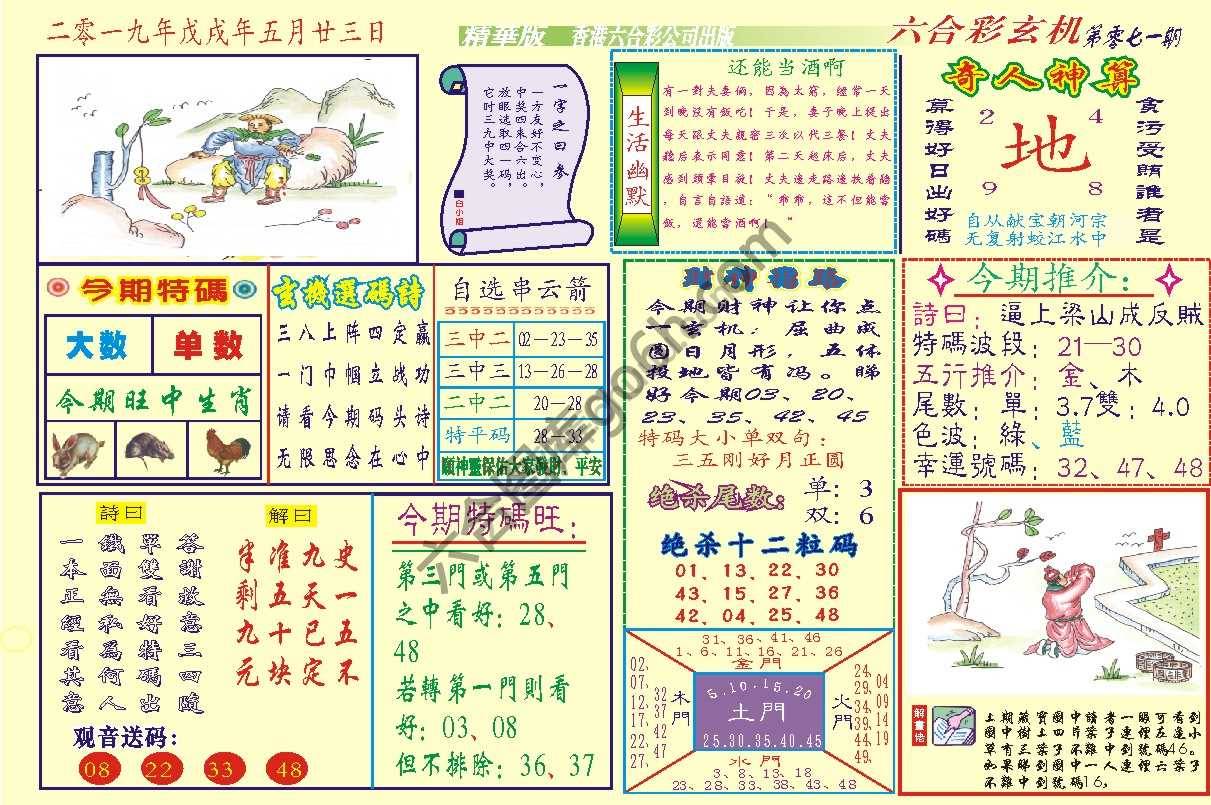 二零一九年戊戌年五月廿三日
精華版 香港六合彩公司出版
六合彩玄机第零七一期
一字之曰参
一方友好不变心，
中奖四来合六出。
放眼选取四一码，
它时三九中大奖。
白小姐
生活幽默
还能当酒啊
有一對夫妻倆，因為太窮，經常一天
到晚沒有飯吃！于是，妻子晚上提出
每天跟丈夫親密三次以代三餐！丈夫
聽后表示同意！第二天起床后，丈夫
感到頭暈目眩！丈夫遠走路邊扶着墻
，自言自語道：“乖乖，這不但能當
飯，還能當酒啊！”
奇人神算
算得好日出好碼
貪污受賄誰者是
2 4
地
9 8
自从献宝朝河宗
无复射蛟江水中
今期特碼
大数 单数
今期旺中生肖
玄機選碼詩
三八上阵四定赢
一门巾帼立战功
请看今期码头诗
无限思念在心中
自选串云箭
三中二 02－23－35
三中三 13－26－28
二中二 20－28
特平码 28－33
願神靈保佑大家發财、平安
财神
今期财神让你点
一玄机：屈曲成
圆日月形，五体
投地皆有冯。睇
好今期03、20、
23、35、42、45
特码大小单双句：
三五刚好月正圆
绝杀尾数：
单：3
双：6
绝杀十二粒码
01、13、22、30
43、15、27、36
42、04、25、48
今期推介：
詩曰：逼上梁山成反賊
特碼波段：21—30
五行推介：金、木
尾數：單：3.7雙：4.0
色波：綠、藍
幸運號碼：32、47、48
詩曰
答謝故意三四隨
單雙看好特碼出
鐵面無私為何人
一本正經看其意
解曰
史一五不
九天已定
准五十块
半剩九元
观音送码：
08 22 33 48
今期特碼旺：
第三門或第五門
之中看好：28、
48
若轉第一門則看
好：03、08
但不排除：36、37
31、36、41、46
1、6、11、16、21、26
金門
02、
07、
12、
17、
22、
27、
32
37
42
47
木門
5.10.15.20
土門
25.30.35.40.45
火門
24、
29、
34、
39、
44、
49、
04
09
14
19
水門
3、8、13、18
23、28、33、38、43、48
解畫悟
上期藏寳圖中請者一眼可看到
圖中樹上四片葉子連裡五蓬小
草有三葉子不難中到號碼46。
如果睇到圖中一人連裡六葉子
不難中到號碼16。
六合图库go6h.com